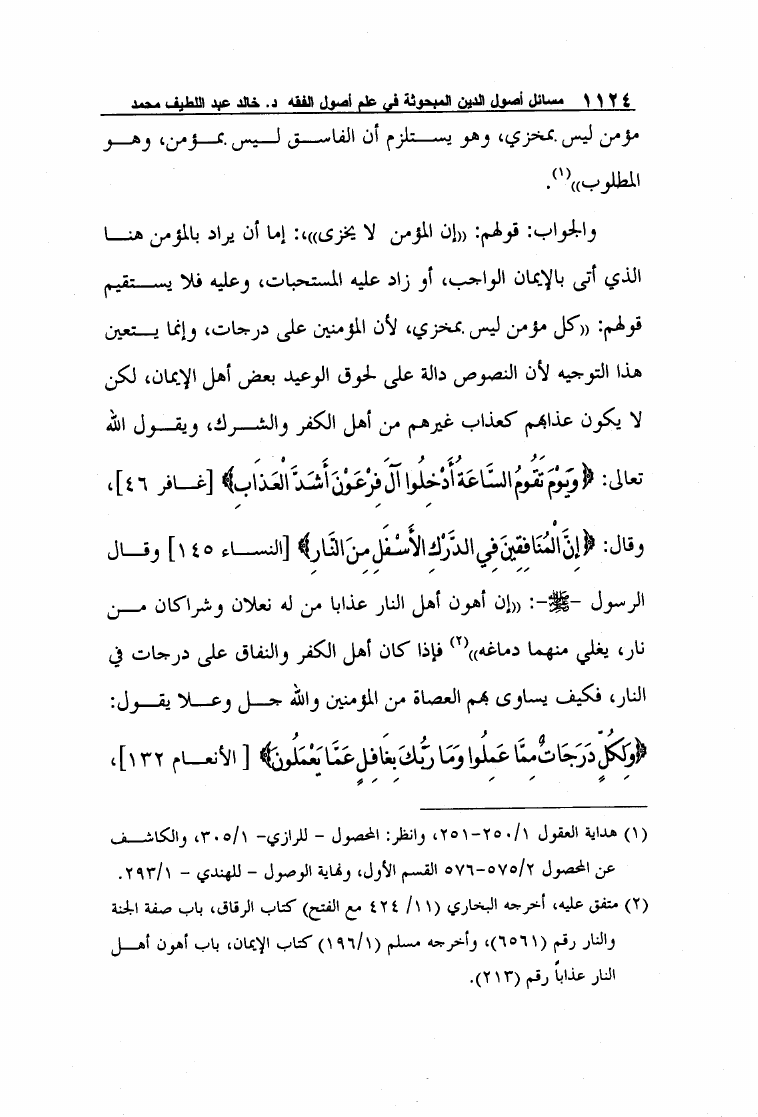 ١١٢٤ مسائل أصول الدين المبحوثة في علم أصول الفقه د. خالد عبد اللطيف محمد
مؤمن ليس بمخزي، وهو يستلزم أن الفاسق ليس بمؤمن، وهو
المطلوب»(١).
والجواب: قولهم: «إن المؤمن لا يخزى»،: إما أن يراد بالمؤمن هنا
الذي أتى بالإيمان الواجب، أو زاد عليه المستحبات، وعليه فلا يستقيم
قولهم: «كل مؤمن ليس بمخزي، لأن المؤمنين على درجات، وإنما يستعين
هذا التوجيه لأن النصوص دالة على لحوق الوعيد بعض أهل الإيمان، لكن
لا يكون عذابهم كعذاب غيرهم من أهل الكفر والشرك، ويقول الله
تعالى: ﴿وَيَوْمَ تَقُومُ السَّاعَةُ أَدْخِلُوا آلَ فِرْعَوْنَ أَشَدَّ الْعَذَابِ﴾ [غافر ٤٦]،
وقال: ﴿إِنَّ الْمُنَافِقِينَ فِي الدَّرْكِ الأَسْفَلِ مِنَ النَّارِ﴾ [النساء ١٤٥] وقال
الرسول -ﷺ-: «إن أهون أهل النار عذابا من له نعلان وشراكان من
نار، يغلي منهما دماغه»(٢) فإذا كان أهل الكفر والنفاق على درجات في
النار، فكيف يساوى بهم العصاة من المؤمنين والله جل وعلا يقول:
﴿وَلِكُلٍّ دَرَجَاتٌ مِمَّا عَمِلُوا وَمَا رَبُّكَ بِغَافِلٍ عَمَّا يَعْمَلُونَ﴾ [ الأنعام ١٣٢]،
(١) هداية العقول ٢٥٠/١-٢٥١، وانظر: المحصول - للرازي- ٣٠٥/١، والكاشف
عن المحصول ٥٧٥/٢-٥٧٦ القسم الأول، ونهاية الوصول - للهندي - ٢٩٣/١.
(٢) متفق عليه، أخرجه البخاري (١١/ ٤٢٤ مع الفتح) كتاب الرقاق، باب صفة الجنة
والنار رقم (٦٥٦١)، وأخرجه مسلم (١٩٦/١) كتاب الإيمان، باب أهون أهل
النار عذاباً رقم (٢١٣).